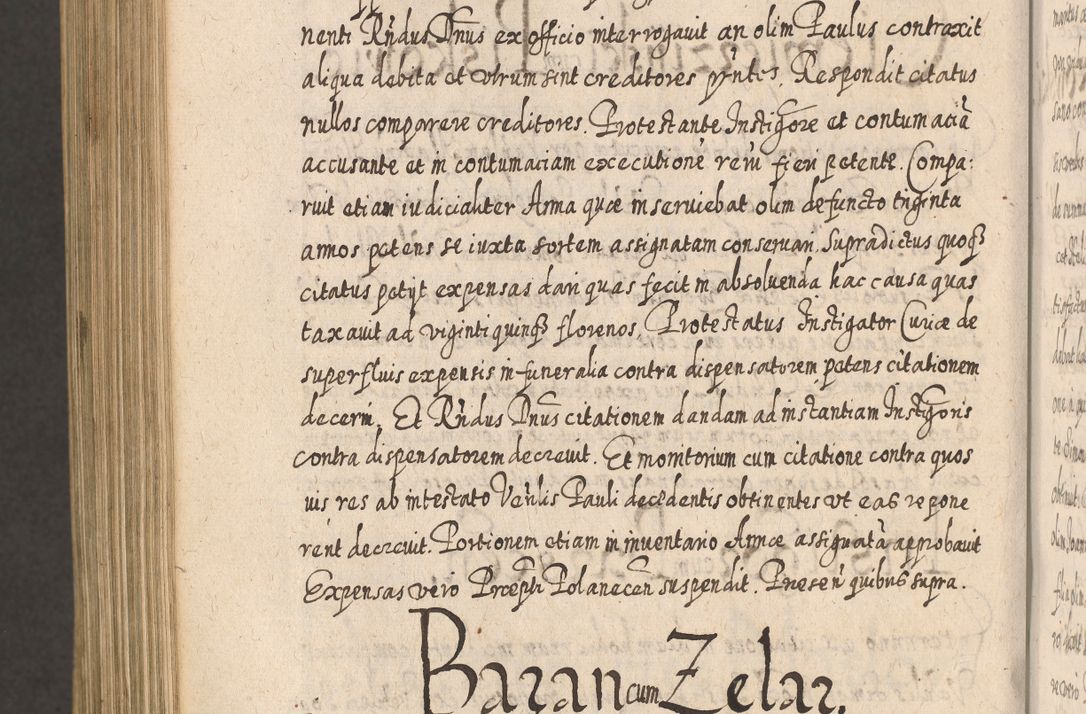 nenti Rn̄dus Dn̄us ex officio interrogauit an olim Paulus contraxit
aliqua debita et vtrum sint creditores pn̄tes. Respondit citatus
nullos comparere creditores. Protestante Instig̃ore et contumaciã
accusante et in contumaciam executionẽ rerũ fieri petente. Compa:
ruit etiam iudicialiter Anna quæ inseruiebat olim defuncto triginta
annos petens se iuxta sortem assignatam conseruari. Supradictus quoqꝫ
citatus petijt expensas dari quas fecit in absoluenda hac causa quas
taxauit ad viginti quinqꝫ florenos. Protestatus Instigator Curiæ de
superfluis expensis in funeralia contra dispensatorem petens citationem
decerni. Et Rn̄dus Dn̄us citationem dandam ad instantiam Instig̃oris
contra dispensatorem decreuit. Et monitorium cum citatione contra quos
uis res ab intestato Ven̄lis Pauli decedentis obtinentes vt eas repone
rent decreuit. Portionem etiam in inuentario Annæ assignatã approbauit
Expensas vero Præp̃ti Polanecen̄ suspendit. Presen̄ quibus supra.
Baran cum Zelar.